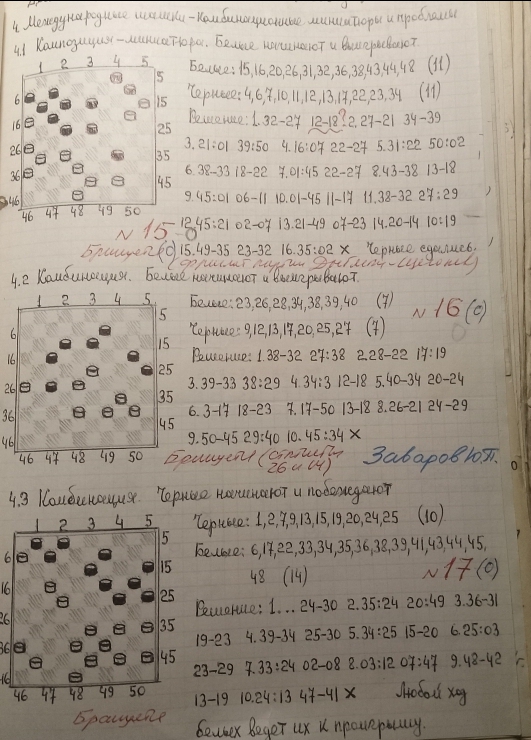 4. Международные шашки - Комбинационные миниатюры и проблемы
4.1 Композиция-миниатюра. Белые начинают и выигрывают
1 2 3 4 5
6 15
16 25
26 35
36 45
46 47 48 49 50
Белые: 15,16,20,26,31,32,36,38,43,44,48 (11)
Черные: 4,6,7,10,11,12,13,17,22,23,34 (11)
Решение: 1.32-27 12-18? 2.27-21 34-39
3.21:01 39:50 4.16:07 22-27 5.31:22 50:02
6.38-33 18-22 7.01:45 22-27 8.43-38 13-18
9.45:01 06-11 10.01-45 11-17 11.38-32 27:29
12.45:21 02-07 13.21-49 07-23 14.20-14 10:19
N 15
Брищете (0) 15.49-35 23-32 16.35:02 × Черные сдались.
4.2 Комбинация. Белые начинают и выигрывают.
1 2 3 4 5
6 15
16 25
26 35
36 45
46 47 48 49 50
Белые: 23,26,28,34,38,39,40 (7)
N 16 (0)
Черные: 9,12,13,17,20,25,27 (7)
Решение: 1.38-32 27:38 2.28-22 17:19
3.39-33 38:29 4.34:3 12-18 5.40-34 20-24
6.3-17 18-23 7.17-50 13-18 8.26-21 24-29
9.50-45 29:40 10.45:34 ×
26 и 14) Заваров Ю.П.
4.3 Комбинация. Черные начинают и побеждают
1 2 3 4 5 5
6 15
16 25
26 35
36 45
46 47 48 49 50
Черные: 1,2,7,9,13,15,19,20,24,25 (10)
Белые: 6,17,22,33,34,35,36,38,39,41,43,44,45,
48 (14)
N 17 (0)
Решение: 1... 24-30 2.35:24 20:49 3.36-31
19-23 4.39-34 25-30 5.34:25 15-20 6.25:03
23-29 7.33:24 02-08 8.03:12 07:47 9.48-42
13-19 10.24:13 47-41 × Любой ход
белых ведет их к проигрышу.